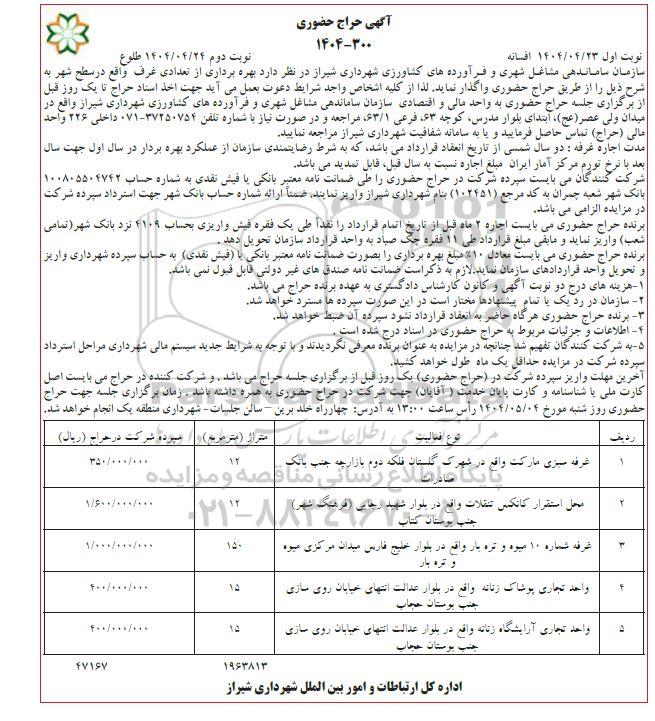 آگهی حراج حضوری
۱۴۰۴-۳۰۰
نوبت اول ۱۴۰۴/۰۴/۲۳ افسانه
نوبت دوم ۱۴۰۴/۰۴/۲۴ طلوع
سازمان ساماندهی مشاغل شهری و فرآورده های کشاورزی شهرداری شیراز در نظر دارد بهره برداری از تعدادی غرف واقع درسطح شهر به
شرح ذیل را از طریق حراج حضوری واگذار نماید. لذا از کلیه اشخاص واجد شرایط دعوت بعمل می آید جهت اخذ اسناد حراج تا یک روز قبل
از برگزاری جلسه حراج حضوری به واحد مالی و اقتصادی سازمان ساماندهی مشاغل شهری و فرآورده های کشاورزی شهرداری شیراز واقع در
میدان ولی عصر(عج)، ابتدای بلوار مدرس، کوچه ۶۳، فرعی ۶۳/۱، مراجعه و در صورت نیاز با شماره تلفن ۳۷۲۵۰۷۵۴-۰۷۱ داخلی ۲۲۶ واحد
مالی (حراج) تماس حاصل فرمایید و یا به سامانه شفافیت شهرداری شیراز مراجعه نمایید.
مدت اجاره غرفه : دو سال شمسی از تاریخ انعقاد قرارداد می باشد، که به شرط رضایتمندی سازمان از عملکرد بهره بردار در سال اول جهت سال
بعد با نرخ تورم مرکز آمار ایران مبلغ اجاره نسبت به سال قبل، قابل تمدید می باشد.
شرکت کنندگان می بایست سپرده شرکت در حراج حضوری را طی ضمانت نامه معتبر بانکی یا فیش نقدی به شماره حساب ۱۰۰۸۰۵۵۰۴۷۴۲
بانک شهر شعبه چمران به کد مرجع (۱۰۲۴۵۱) بنام شهرداری شیراز واریز نمایند. ضمناً ارائه شماره حساب بانک شهر جهت استرداد سپرده شرکت
در مزایده الزامی می باشد.
برنده حراج حضوری می بایست اجاره ۲ ماه قبل از تاریخ اتمام قرارداد را نقداً طی یک فقره فیش واریزی بحساب ۴۱۰۹ نزد بانک شهر(تمامی
شعب) واریز نماید و مابقی مبلغ قرارداد طی ۱۱ فقره چک صیاد به واحد قرارداد سازمان تحویل دهد .
برنده حراج حضوری می بایست معادل ۱۰٪ مبلغ بهره برداری را بصورت ضمانت نامه معتبر بانکی یا (فیش نقدی) به حساب سپرده شهرداری واریز
و تحویل واحد قراردادهای سازمان نماید.لازم به ذکراست ضمانت نامه صندق های غیر دولتی قابل قبول نمی باشد.
۱-هزینه های درج دو نوبت آگهی و کانون کارشناس دادگستری به عهده برنده حراج می باشد.
۲- سازمان در رد یک یا تمام پیشنهادها مختار است در این صورت سپرده ها مسترد خواهد شد.
۳- برنده حراج حضوری هرگاه حاضر به انعقاد قرارداد نشود سپرده آن ضبط خواهد شد.
۴- اطلاعات و جزئیات مربوط به حراج حضوری در اسناد درج شده است .
۵-به شرکت کنندگان تفهیم شد چنانچه در مزایده به عنوان برنده معرفی نگردیدند و با توجه به شرایط جدید سیستم مالی شهرداری مراحل استرداد
سپرده شرکت در مزایده حداقل یک ماه طول خواهد کشید.
آخرین مهلت واریز سپرده شرکت در (حراج حضوری) یک روز قبل از برگزاری جلسه حراج می باشد . و شرکت کننده در حراج می بایست اصل
کارت ملی یا شناسنامه و کارت پایان خدمت( آقایان) جهت شرکت در حراج حضوری به همره داشته باشد. زمان برگزاری جلسه جهت حراج
حضوری روز شنبه مورخ ۱۴۰۴/۰۵/۰۴ رأس ساعت ۱۳:۰۰ به آدرس: چهارراه خلد برین – سالن جلسات- شهرداری منطقه یک انجام خواهد شد.
ردیف نوع فعالیت متراژ (مترمربع) سپرده شرکت درحراج (ریال)
۱ غرفه سبزی مارکت واقع در شهرک گلستان فلکه دوم بازارچه جنب بانک صادرات ۱۲ ۳۵۰/۰۰۰/۰۰۰
۲ محل استقرار کانکس تنقلات واقع در بلوار شهید رجایی (فرهنگ شهر) جنب بوستان کتاب ۱۲ ۱/۶۰۰/۰۰۰/۰۰۰
۳ غرفه شماره ۱۰ میوه و تره بار واقع در بلوار خلیج فارس میدان مرکزی میوه و تره بار ۱۵۰ ۱/۰۰۰/۰۰۰/۰۰۰
۴ واحد تجاری پوشاک زنانه واقع در بلوار عدالت انتهای خیابان روی سازی جنب بوستان حجاب ۱۵ ۴۰۰/۰۰۰/۰۰۰
۵ واحد تجاری آرایشگاه زنانه واقع در بلوار عدالت انتهای خیابان روی سازی جنب بوستان حجاب ۱۵ ۴۰۰/۰۰۰/۰۰۰
۱۹۶۳۸۱۳
۴۷۱۶۷
اداره کل ارتباطات و امور بین الملل شهرداری شیراز
پایگاه اطلاع رسانی مناقصه و مزایده
۰۲۱-۸۸۳۴۹۶۷۰-۵